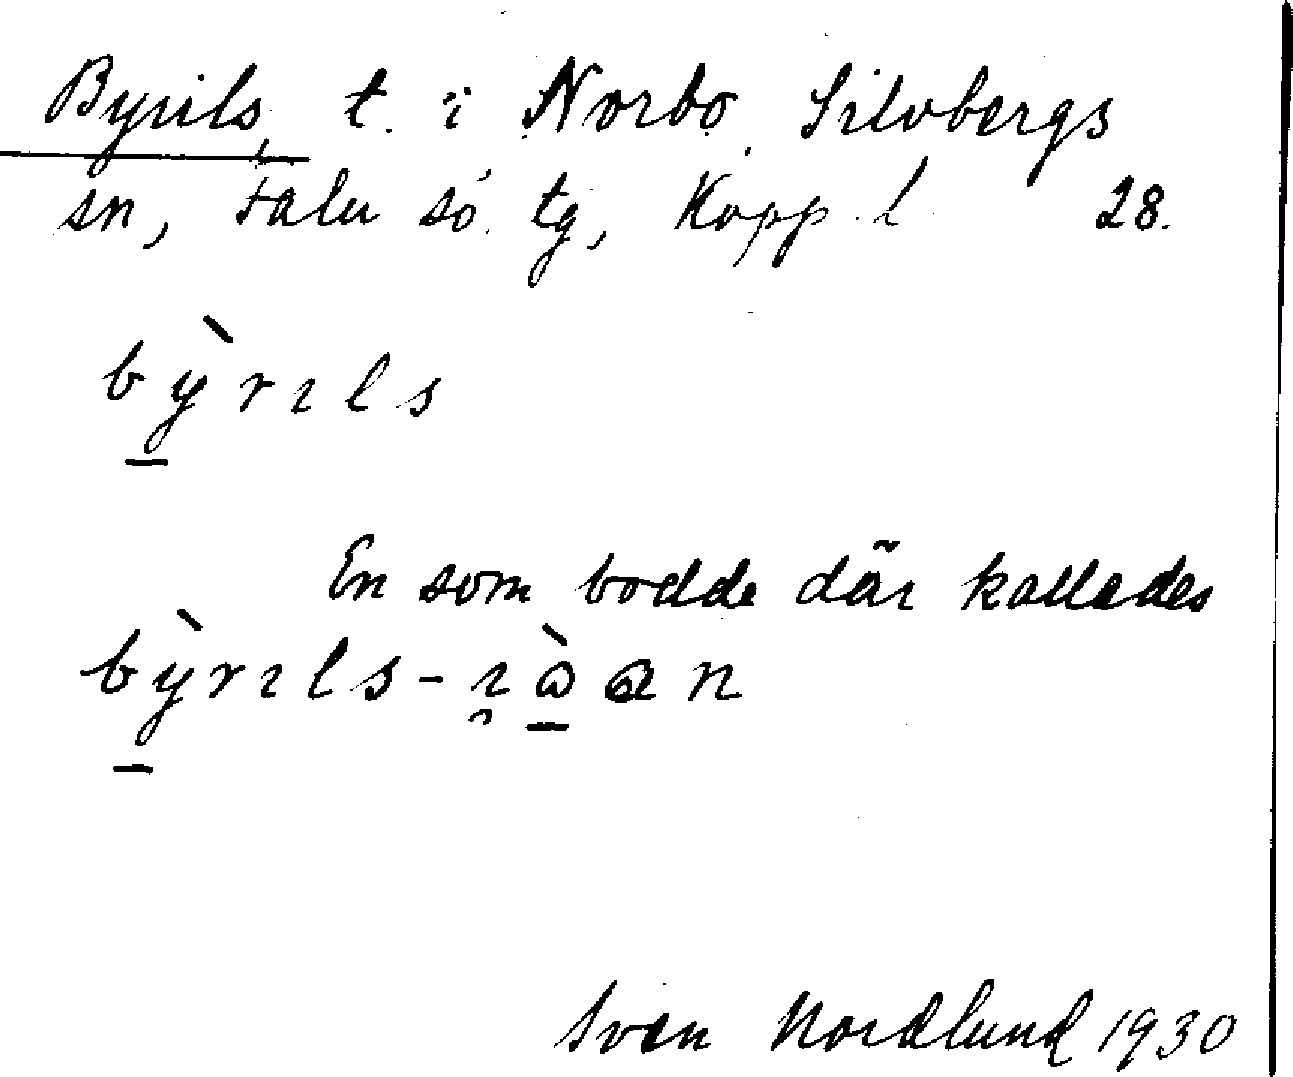 Byrils, t. i Norbo, Silvbergs
sn, Falu sö. tg, Kopp. l. 28.
bỳ̠rıls
En som bodde där kallades
bỳ̠rıls-ı̯ɷ̠̀an
Sven Nordlund 1930